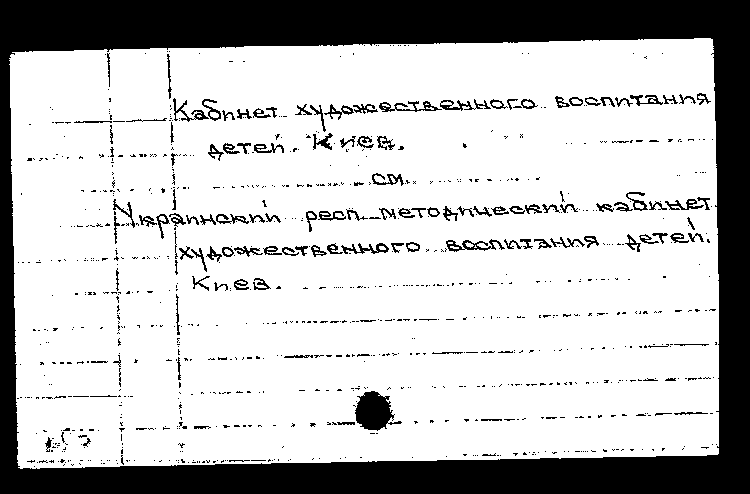 Кабинет художественного воспитания
детей. Киев.
см.
Украинский респ. методический кабинет
художественного воспитания детей.
Киев.